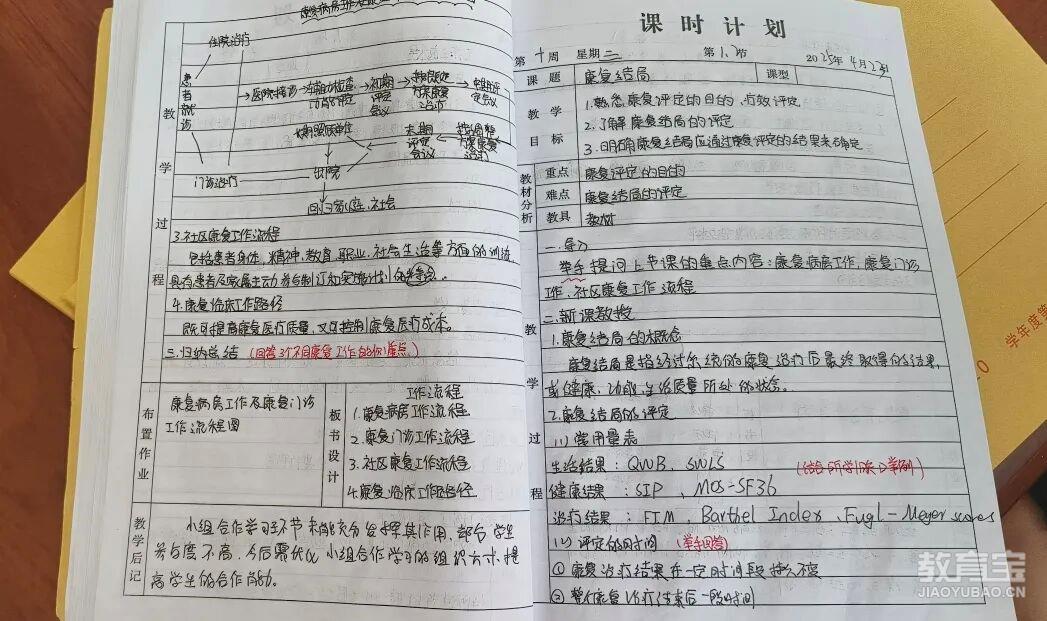 康复病房工作流程
住院治疗
患者就诊
医院接诊
初期评定会议
中期评定会议
末期评定会议
出院
门诊治疗
回归家庭、社会
教学过程
3.社区康复工作流程
包括患者身体、精神、教育、职业、社会生活等方面的训练
具有患者及家属主动参与制订和实施计划的特点。
4.康复临床工作路径
既可提高康复医疗质量,又可控制康复医疗成本。
三.归纳总结(回答3个不同康复工作的侧重点)
布置作业
康复病房工作及康复门诊
工作流程图
板书设计
工作流程
1.康复病房工作流程
2.康复门诊工作流程
3.社区康复工作流程
4.康复临床工作路径
教学后记
小组合作学习环节未能充分发挥其作用,部分学生
参与度不高,今后需优化小组合作学习的组织方式,提
高学生的合作能力。
课时计划
第十周 星期二 第1、2节 2025年4月22日
课题
康复结局
课型
教学目标
1.熟悉康复评定的目的、疗效评定
2.了解康复结局的评定
3.明确康复结局应通过康复评定的结果来确定
教材分析
重点
康复评定的目的
难点
康复结局的评定
教具
教材
教学过程
一.导入
举手提问上节课的重点内容:康复病房工作、康复门诊
工作、社区康复工作流程
二.新课教授
1.康复结局的概念
康复结局是指经过系统的康复治疗后最终取得的结果,
或健康、功能、生活质量所处的状态。
2.康复结局的评定
(1)常用量表
生活结果:QWB、SWLS
健康结果:SIP、MOS-SF36
治疗结果:FIM、Barthel Index、Fugl-Meyer scores
评定的时间(举手回答)
①康复治疗结果在一定时间段持久不变
②整个康复治疗结束后一段时间
学年度第
教育宝
JIAOYUBAO.CN